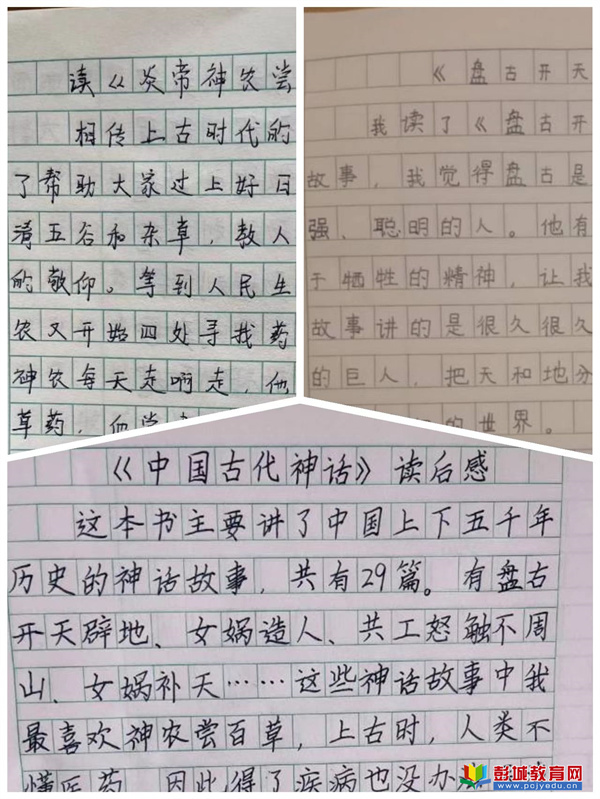 读《炎帝神农尝
相传上古时代的
了帮助大家过上好日
清五谷和杂草，教人
的敬仰。等到人民生
农又开始四处寻找药
神农每天走啊走，他
草药，他尝
《盘古开天
我读了《盘古开
故事，我觉得盘古是
强、聪明的人。他有
于牺牲的精神，让我
故事讲的是很久很久
的巨人，把天和地分
的世界。
《中国古代神话》读后感
这本书主要讲了中国上下五千年
历史的神话故事，共有29篇。有盘古
开天辟地、女娲造人、共工怒触不周
山、女娲补天……这些神话故事中我
最喜欢神农尝百草，上古时，人类不
懂医药，因此得了疾病也没办
彭城教育网
www.pcjyedu.cn